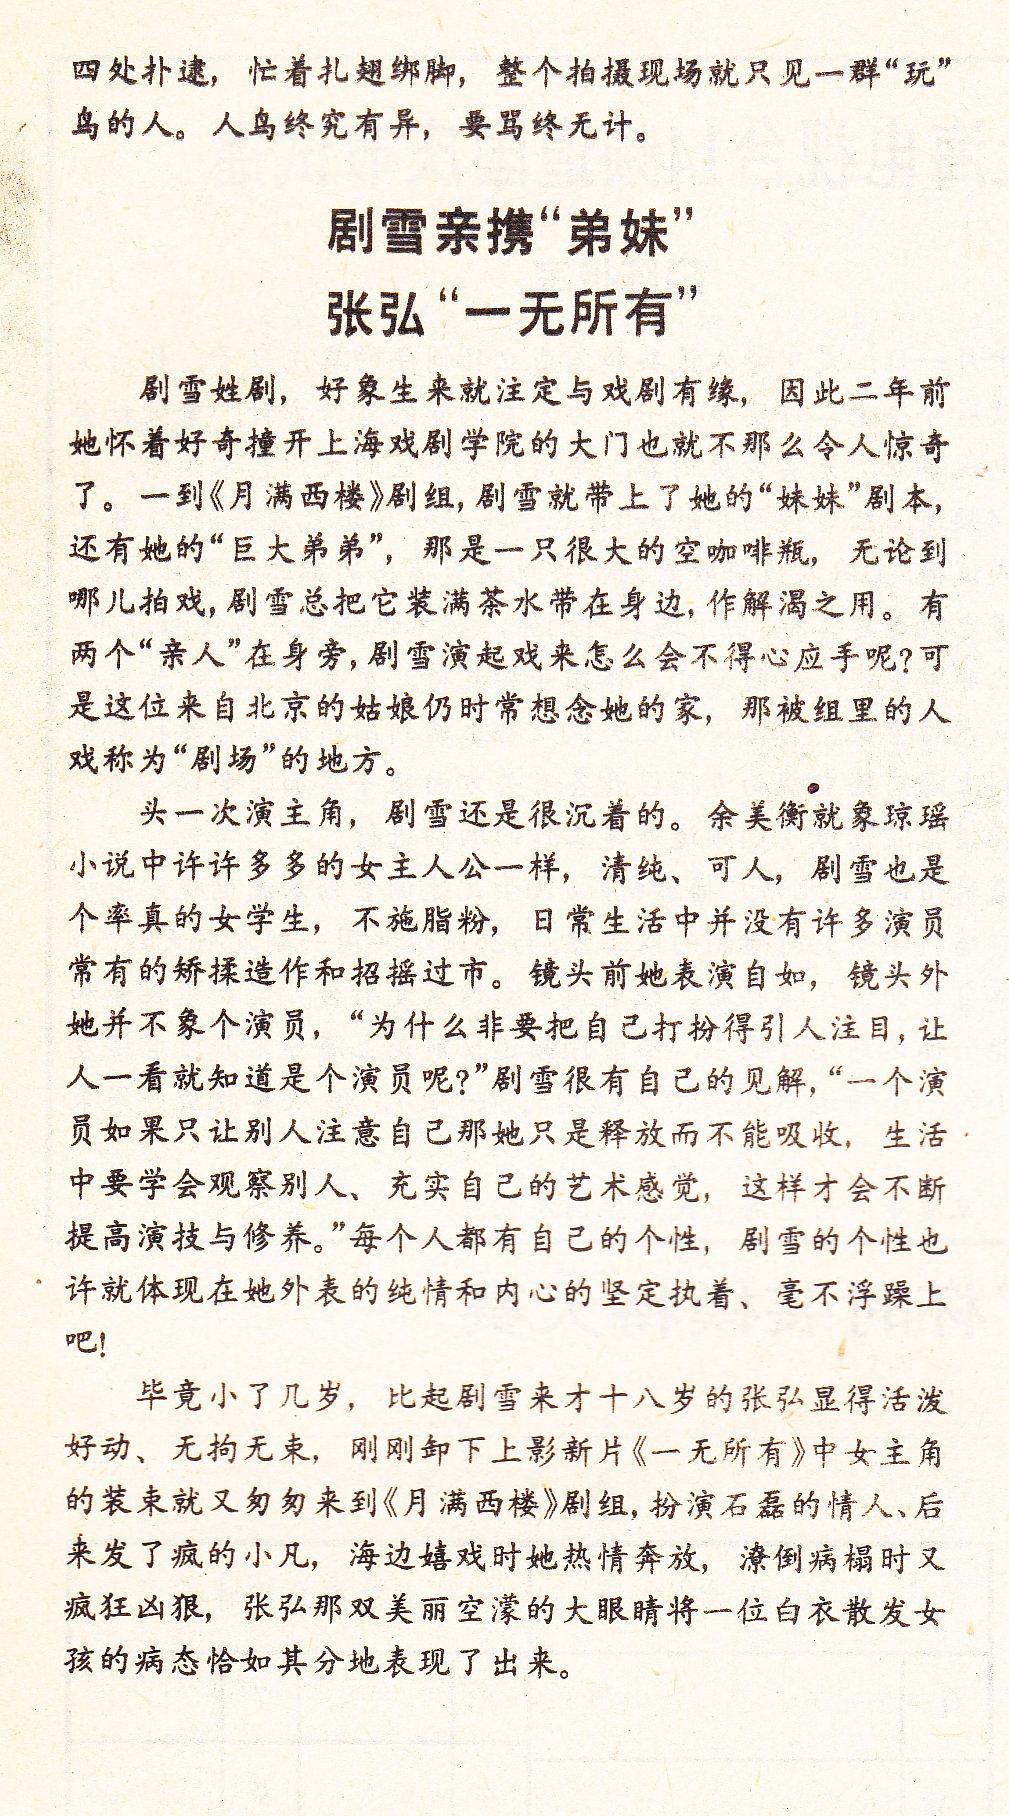 四处扑逮，忙着扎翅绑脚，整个拍摄现场就只见一群“玩”
鸟的人。人鸟终究有异，要骂终无计。
剧雪亲携“弟妹”
张弘“一无所有”
剧雪姓剧，好象生来就注定与戏剧有缘，因此二年前
她怀着好奇撞开上海戏剧学院的大门也就不那么令人惊奇
了。一到《月满西楼》剧组，剧雪就带上了她的“妹妹”剧本，
还有她的“巨大弟弟”，那是一只很大的空咖啡瓶，无论到
哪儿拍戏，剧雪总把它装满茶水带在身边，作解渴之用。有
两个“亲人”在身旁，剧雪演起戏来怎么会不得心应手呢？可
是这位来自北京的姑娘仍时常想念她的家，那被组里的人
戏称为“剧场”的地方。
头一次演主角，剧雪还是很沉着的。余美衡就象琼瑶
小说中许许多多的女主人公一样，清纯、可人，剧雪也是
个率真的女学生，不施脂粉，日常生活中并没有许多演员
常有的矫揉造作和招摇过市。镜头前她表演自如，镜头外
她并不象个演员，“为什么非要把自己打扮得引人注目，让
人一看就知道是个演员呢？”剧雪很有自己的见解，“一个演
员如果只让别人注意自己那她只是释放而不能吸收，生活
中要学会观察别人、充实自己的艺术感觉，这样才会不断
提高演技与修养。”每个人都有自己的个性，剧雪的个性也
许就体现在她外表的纯情和内心的坚定执着、毫不浮躁上
吧！
毕竟小了几岁，比起剧雪来才十八岁的张弘显得活泼
好动、无拘无束，刚刚卸下上影新片《一无所有》中女主角
的装束就又匆匆来到《月满西楼》剧组，扮演石磊的情人、后
来发了疯的小凡，海边嬉戏时她热情奔放，潦倒病榻时又
疯狂凶狠，张弘那双美丽空濛的大眼睛将一位白衣散发女
孩的病态恰如其分地表现了出来。